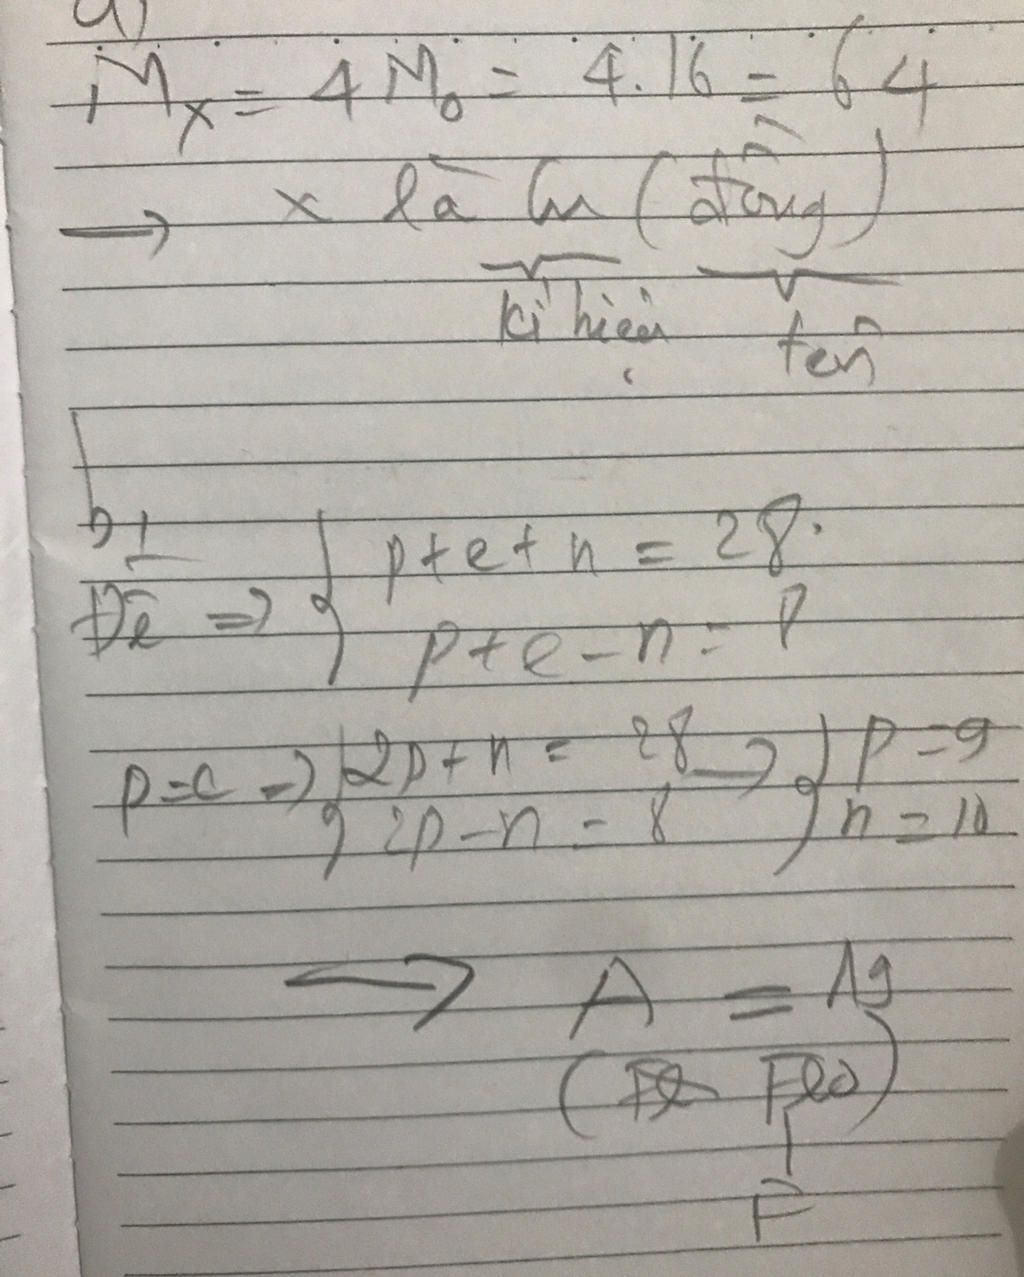 a)
Mx = 4 Mo = 4.16 = 64
→ x là Cu (đồng)
kí hiệu tên
b)
Đề => { p+e+n = 28
p+e-n = 8
p=e => { 2p+n = 28 → { p = 9
2p-n = 8 n = 10
→ A = 19
(Flo)
F